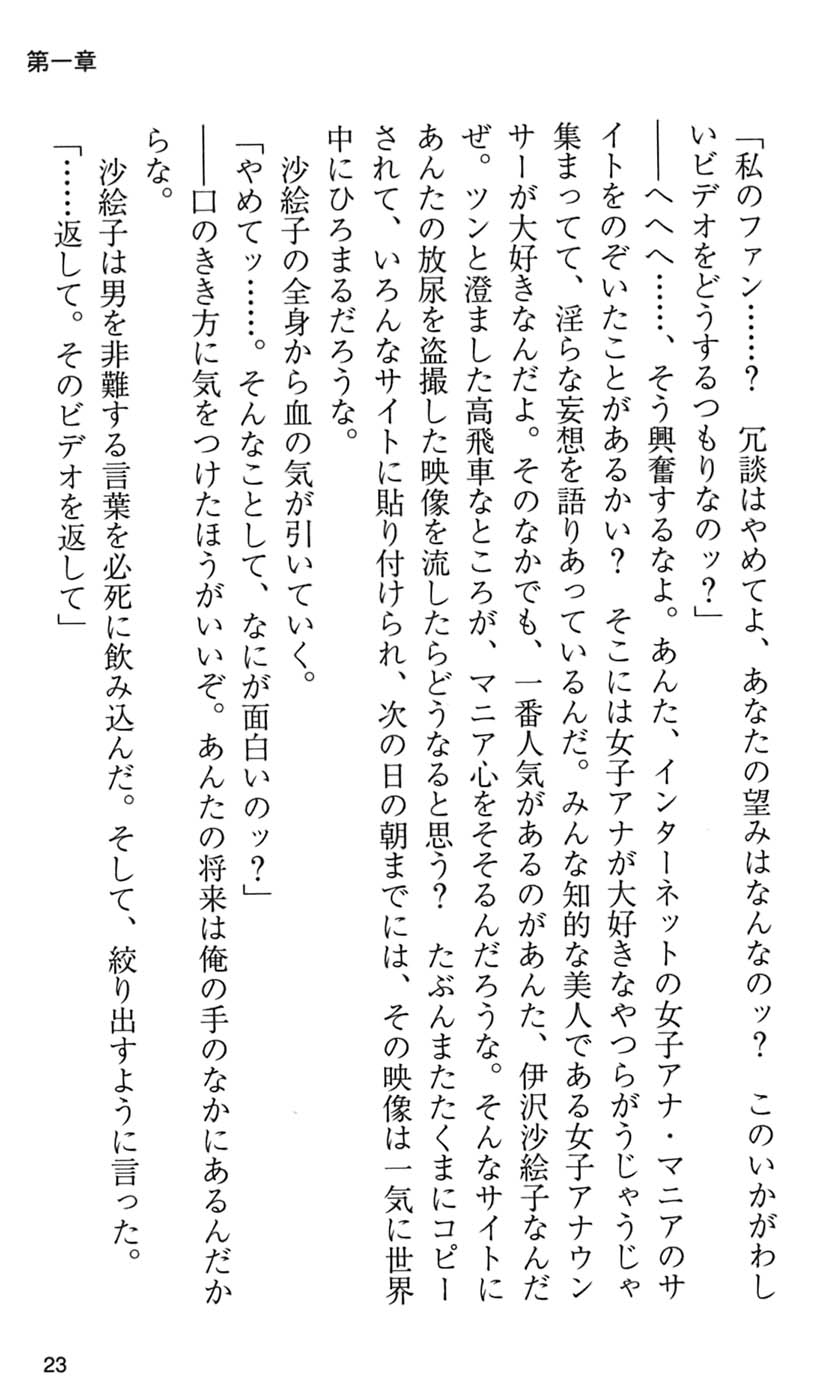 第一章
「私のファン……？　冗談はやめてよ、あなたの望みはなんなのッ？　このいかがわし
いビデオをどうするつもりなのッ？」
――へへへ……、そう興奮するなよ。あんた、インターネットの女子アナ・マニアのサ
イトをのぞいたことがあるかい？　そこには女子アナが大好きなやつらがうじゃうじゃ
集まってて、淫らな妄想を語りあっているんだ。みんな知的な美人である女子アナウン
サーが大好きなんだよ。そのなかでも、一番人気があるのがあんた、伊沢沙絵子なんだ
ぜ。ツンと澄ました高飛車なところが、マニア心をそそるんだろうな。そんなサイトに
あんたの放尿を盗撮した映像を流したらどうなると思う？　たぶんまたたくまにコピー
されて、いろんなサイトに貼り付けられ、次の日の朝までには、その映像は一気に世界
中にひろまるだろうな。
　沙絵子の全身から血の気が引いていく。
「やめてッ……。そんなことして、なにが面白いのッ？」
――口のきき方に気をつけたほうがいいぞ。あんたの将来は俺の手のなかにあるんだか
らな。
　沙絵子は男を非難する言葉を必死に飲み込んだ。そして、絞り出すように言った。
「……返して。そのビデオを返して」
23